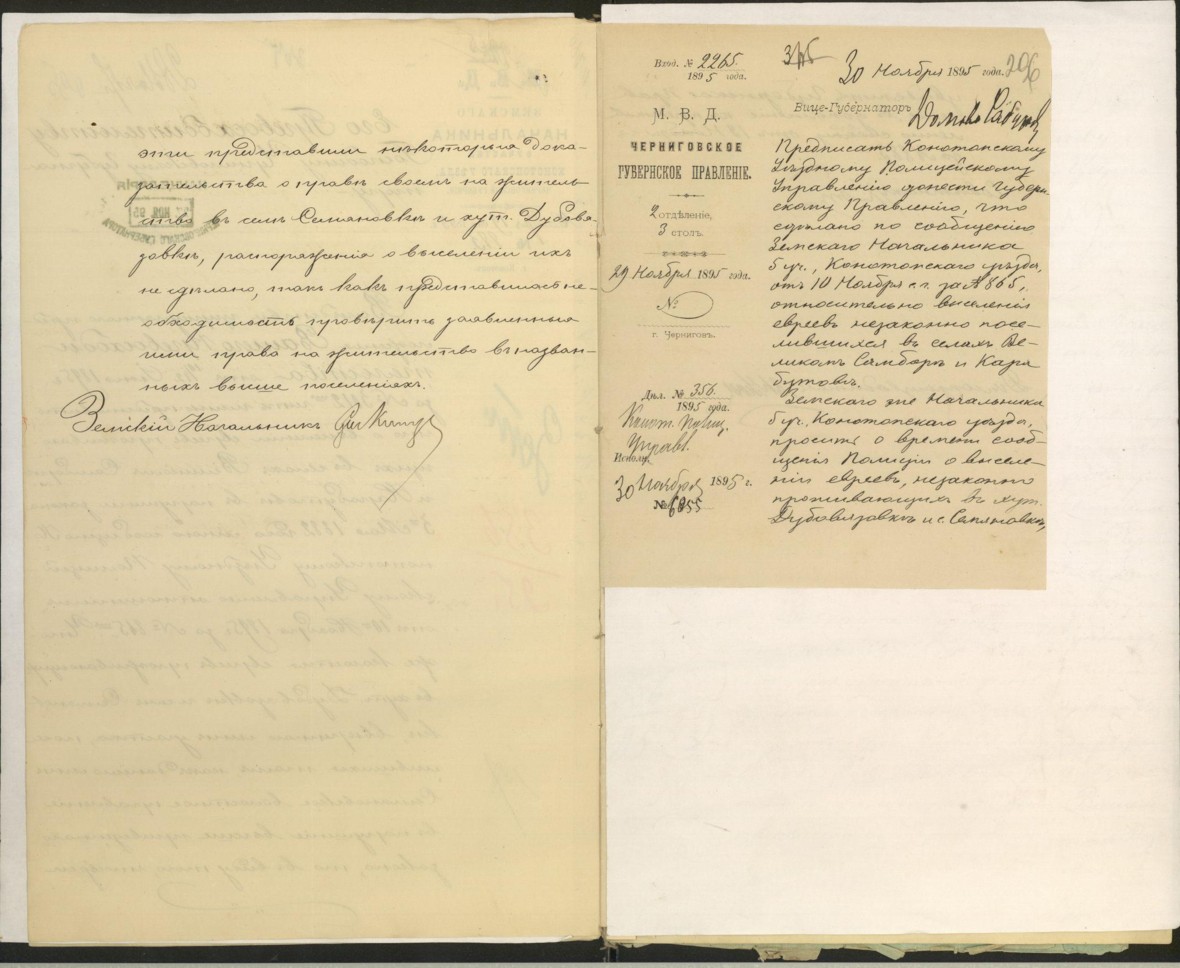 эти представили нѣкоторыя дока-
зательства о правѣ своемъ на житель-
ство въ сел. Семяновкѣ и хут. Дубовя-
зовкѣ, распоряженія о выселеніи ихъ
не сдѣлано, такъ какъ представилась не-
обходимость провѣрить заявленныя
ими права на жительство въ назван-
ныхъ выше поселеніяхъ.
Земскій Начальникъ
Вход. № 2265
1895 года.
М. В. Д.
ЧЕРНИГОВСКОЕ
ГУБЕРНСКОЕ ПРАВЛЕНІЕ.
2 отдѣленіе,
3 столъ.
29 Ноября 1895 года.
№
г. Черниговъ.
Дѣл. № 356
1895 года.
Конот. Полиц.
Управл.
Исполн.
30 Ноября 1895 г.
№ 6855
345
30 Ноября 1895 года.
206
Вице-Губернаторъ
Предписать Конотопскому
Уѣздному Полицейскому
Управленію донести Губерн-
скому Правленію, что
сдѣлано по сообщенію
Земскаго Начальника
5 уч., Конотопскаго уѣзда,
отъ 10 Ноября с. г. за № 865,
относительно выселенія
евреевъ незаконно посе-
лившихся въ селахъ Ве-
ликомъ Самборѣ и Кара
бутовѣ.
Земскаго же Начальника
6 уч. Конотопскаго уѣзда,
просить о времени сооб-
щенія Полиціи о выселе-
ніи евреевъ, незаконно
проживающихъ въ хут.
Дубовязовкѣ и с. Семяновкѣ,